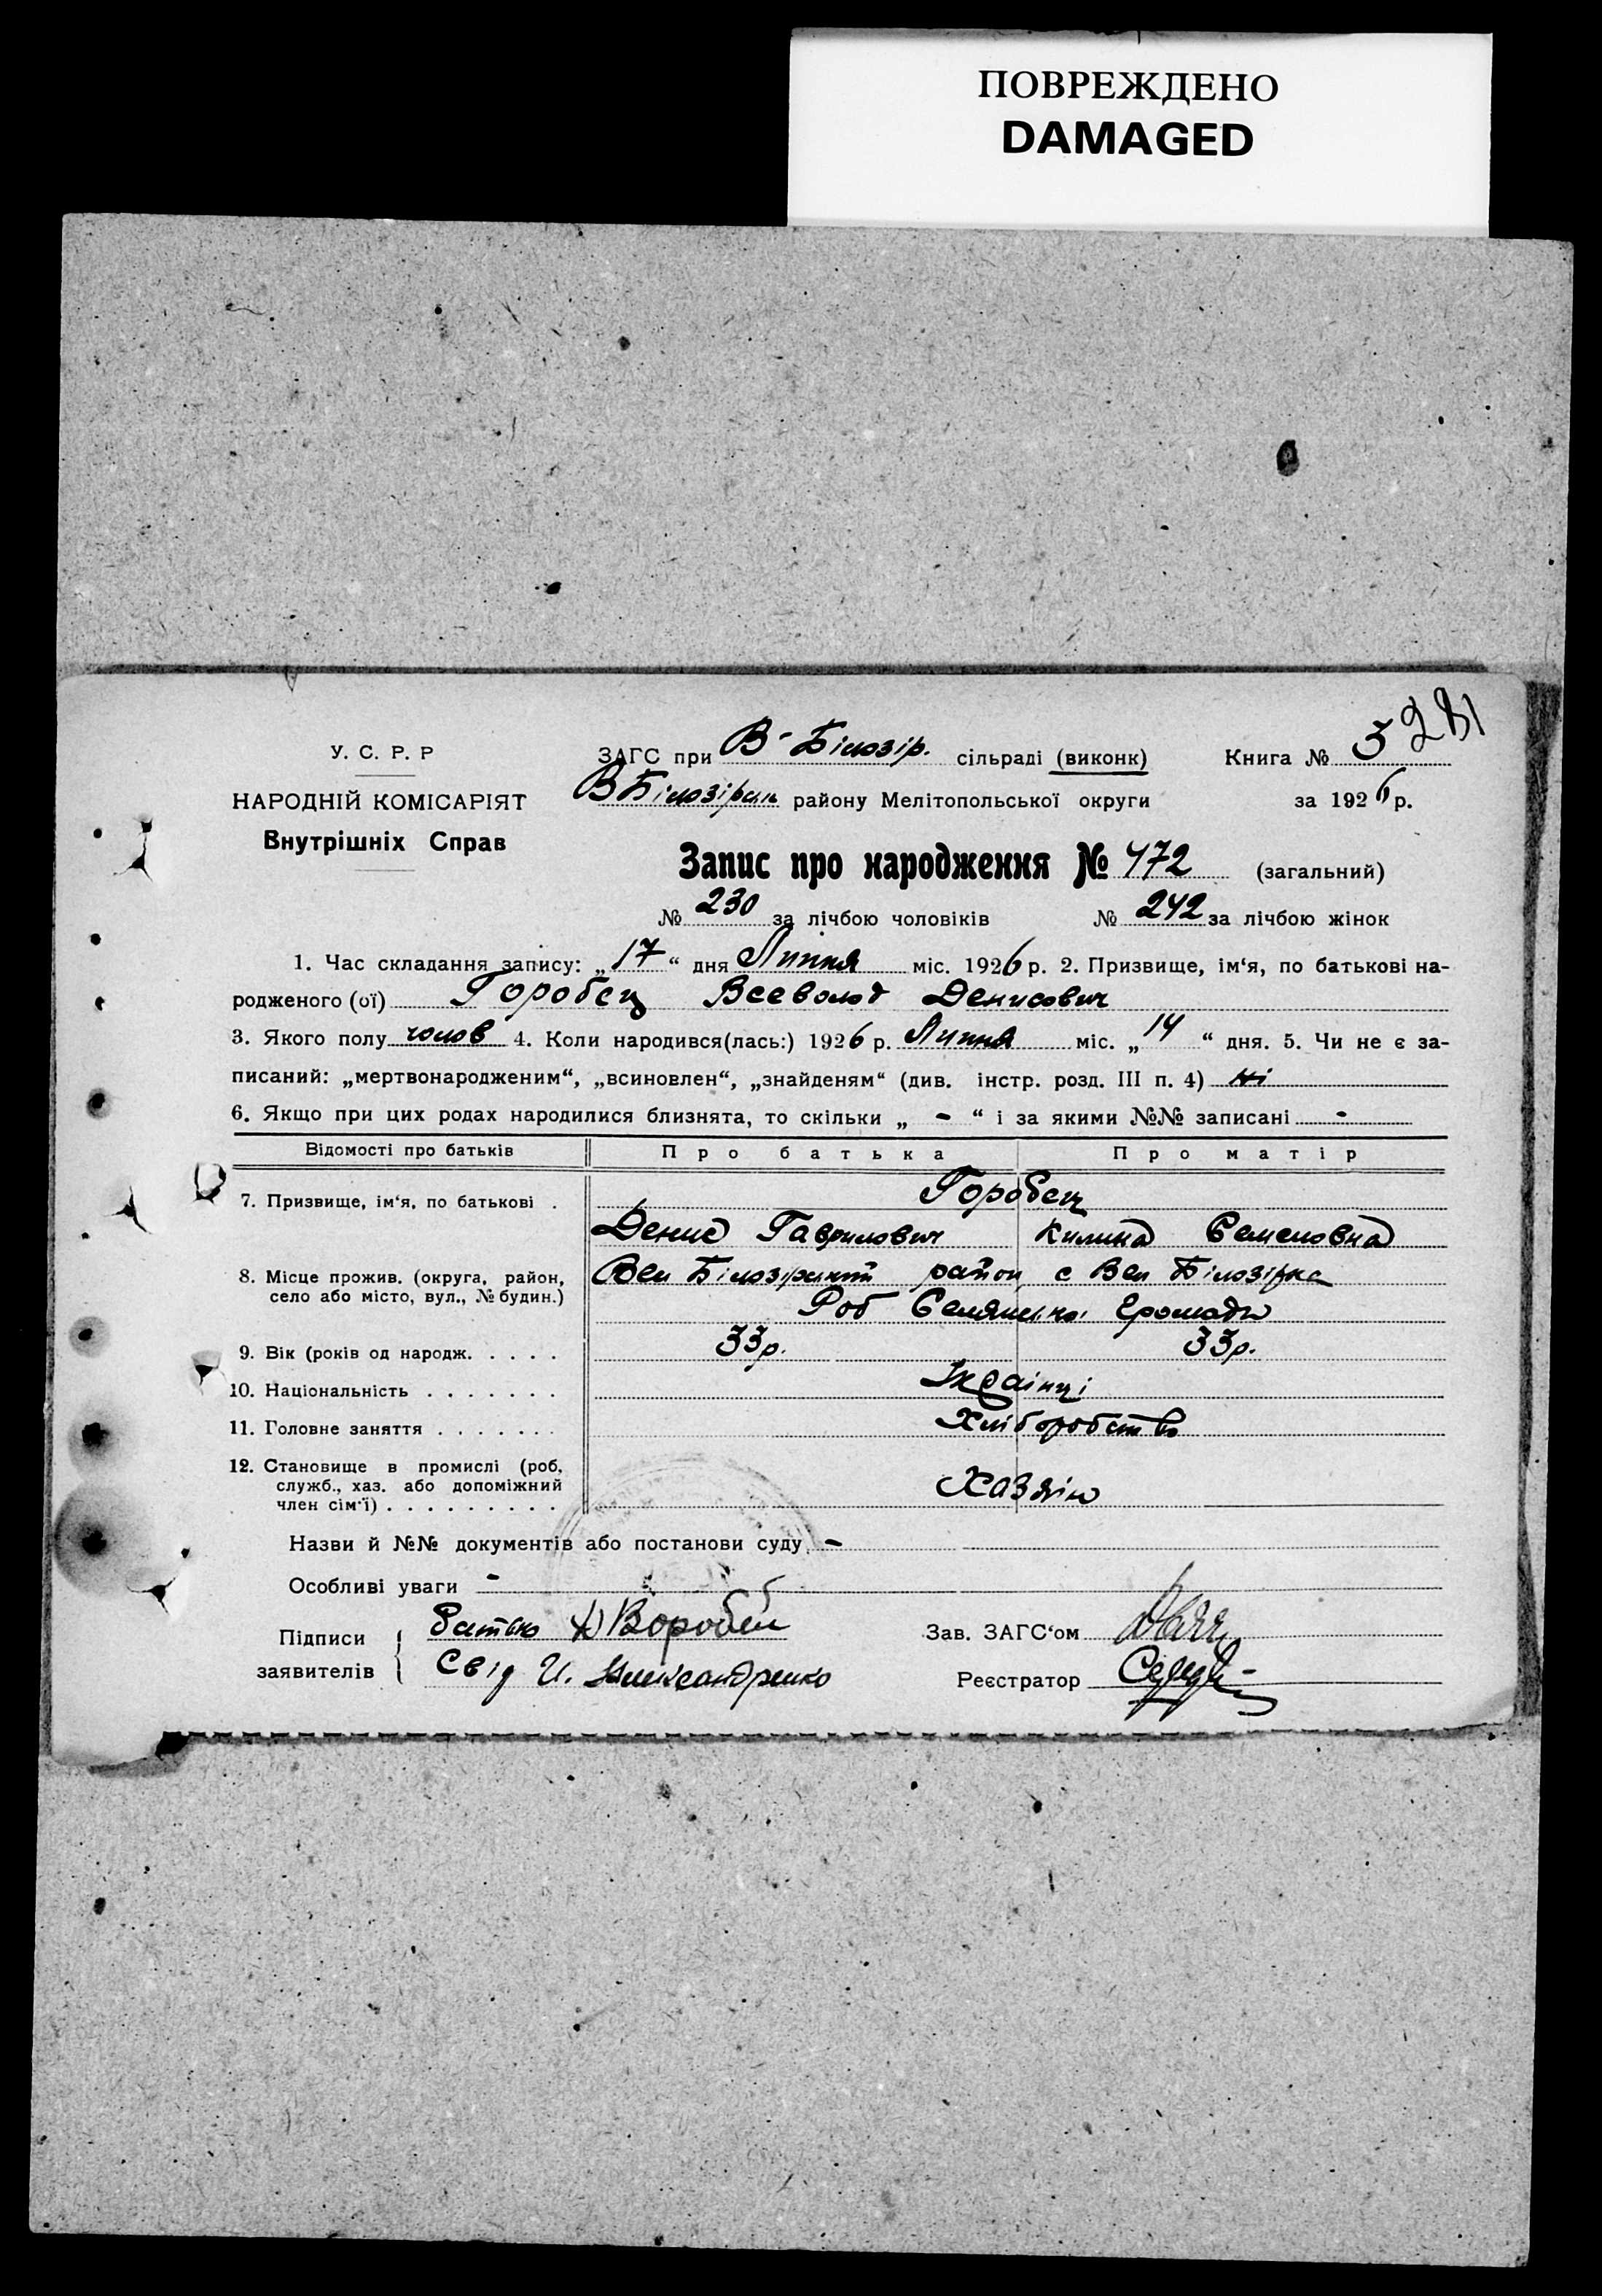 ПОВРЕЖДЕНО
DAMAGED
281
У. С. Р. Р
НАРОДНІЙ КОМІСАРІЯТ
Внутрішніх Справ
ЗАГС при В-Білозір. сільраді (виконк) Книга № 3
ВБілозірськ району Мелітопольської округи за 1926 р.
Запис про народження № 472 (загальний)
№ 230 за лічбою чоловіків № 242 за лічбою жінок
1. Час складання запису: „17“ дня Липня міс. 1926 р. 2. Призвище, ім‘я, по батькові на-
родженого (ої) Горобец Всеволод Денисович
3. Якого полу чолов 4. Коли народився(лась:) 1926 р. Липня міс. „14“ дня. 5. Чи не є за-
писаний: „мертвонародженим“, „всиновлен“, „знайденям“ (див. інстр. розд. III п. 4) ні
6. Якщо при цих родах народилися близнята, то скільки „ - “ і за якими №№ записані -
Відомості про батьків Про батька Про матір
7. Призвище, ім‘я, по батькові . Горобец
Денис Гаврилович Килина Семеновна
8. Місце прожив. (округа, район, село або місто, вул., № будин.) Вел Білозірський район с Вел Білозірка
Роб Селянської Громади
9. Вік (років од народж. . . . . 33р. 33р.
10. Національність . . . . . . . Українці
11. Головне заняття . . . . . . . Хліборобство
12. Становище в промислі (роб, служб., хаз. або допоміжний член сім‘ї) . . . . . . . . . Хазяін
Назви й №№ документів або постанови суду -
Особливі уваги -
Підписи заявителів { батько Д Воробец
Свід И. Александренко
Зав. ЗАГС‘ом
Реєстратор